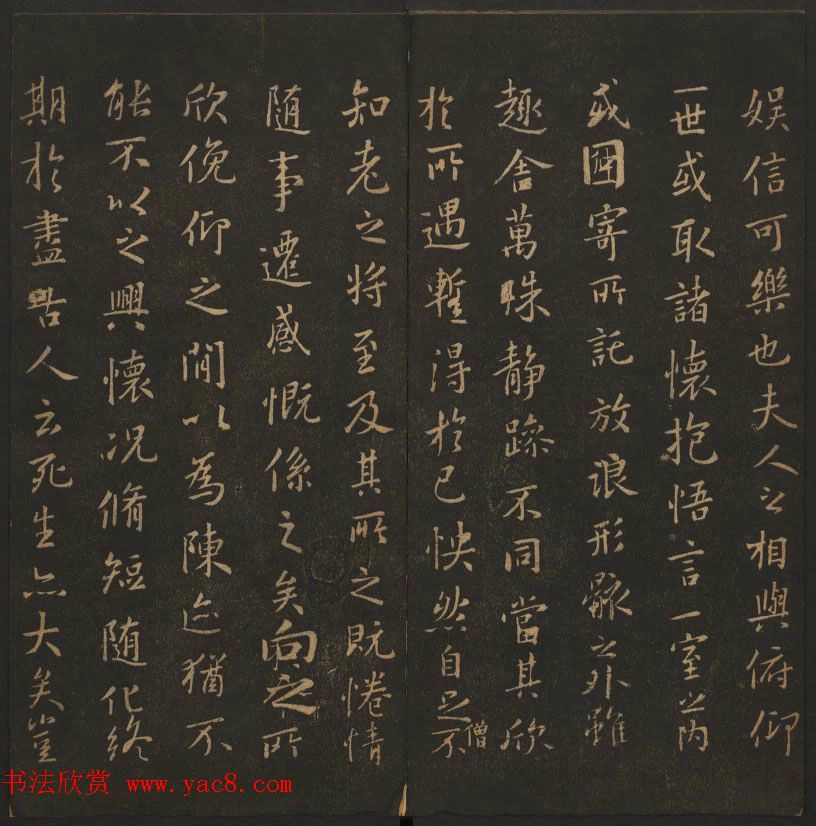 娱信可樂也夫人之相與俯仰
一世或取諸懷抱悟言一室之内
或因寄所託放浪形骸之外雖
趣舍萬殊静躁不同當其欣
於所遇暫得於己怏然自足不
僧
知老之將至及其所之既惓情
随事遷感慨係之矣向之所
欣俛仰之間以為陳迹猶不
能不以之興懷况脩短随化終
期於盡古人云死生亦大矣豈
书法欣赏 www.yac8.com